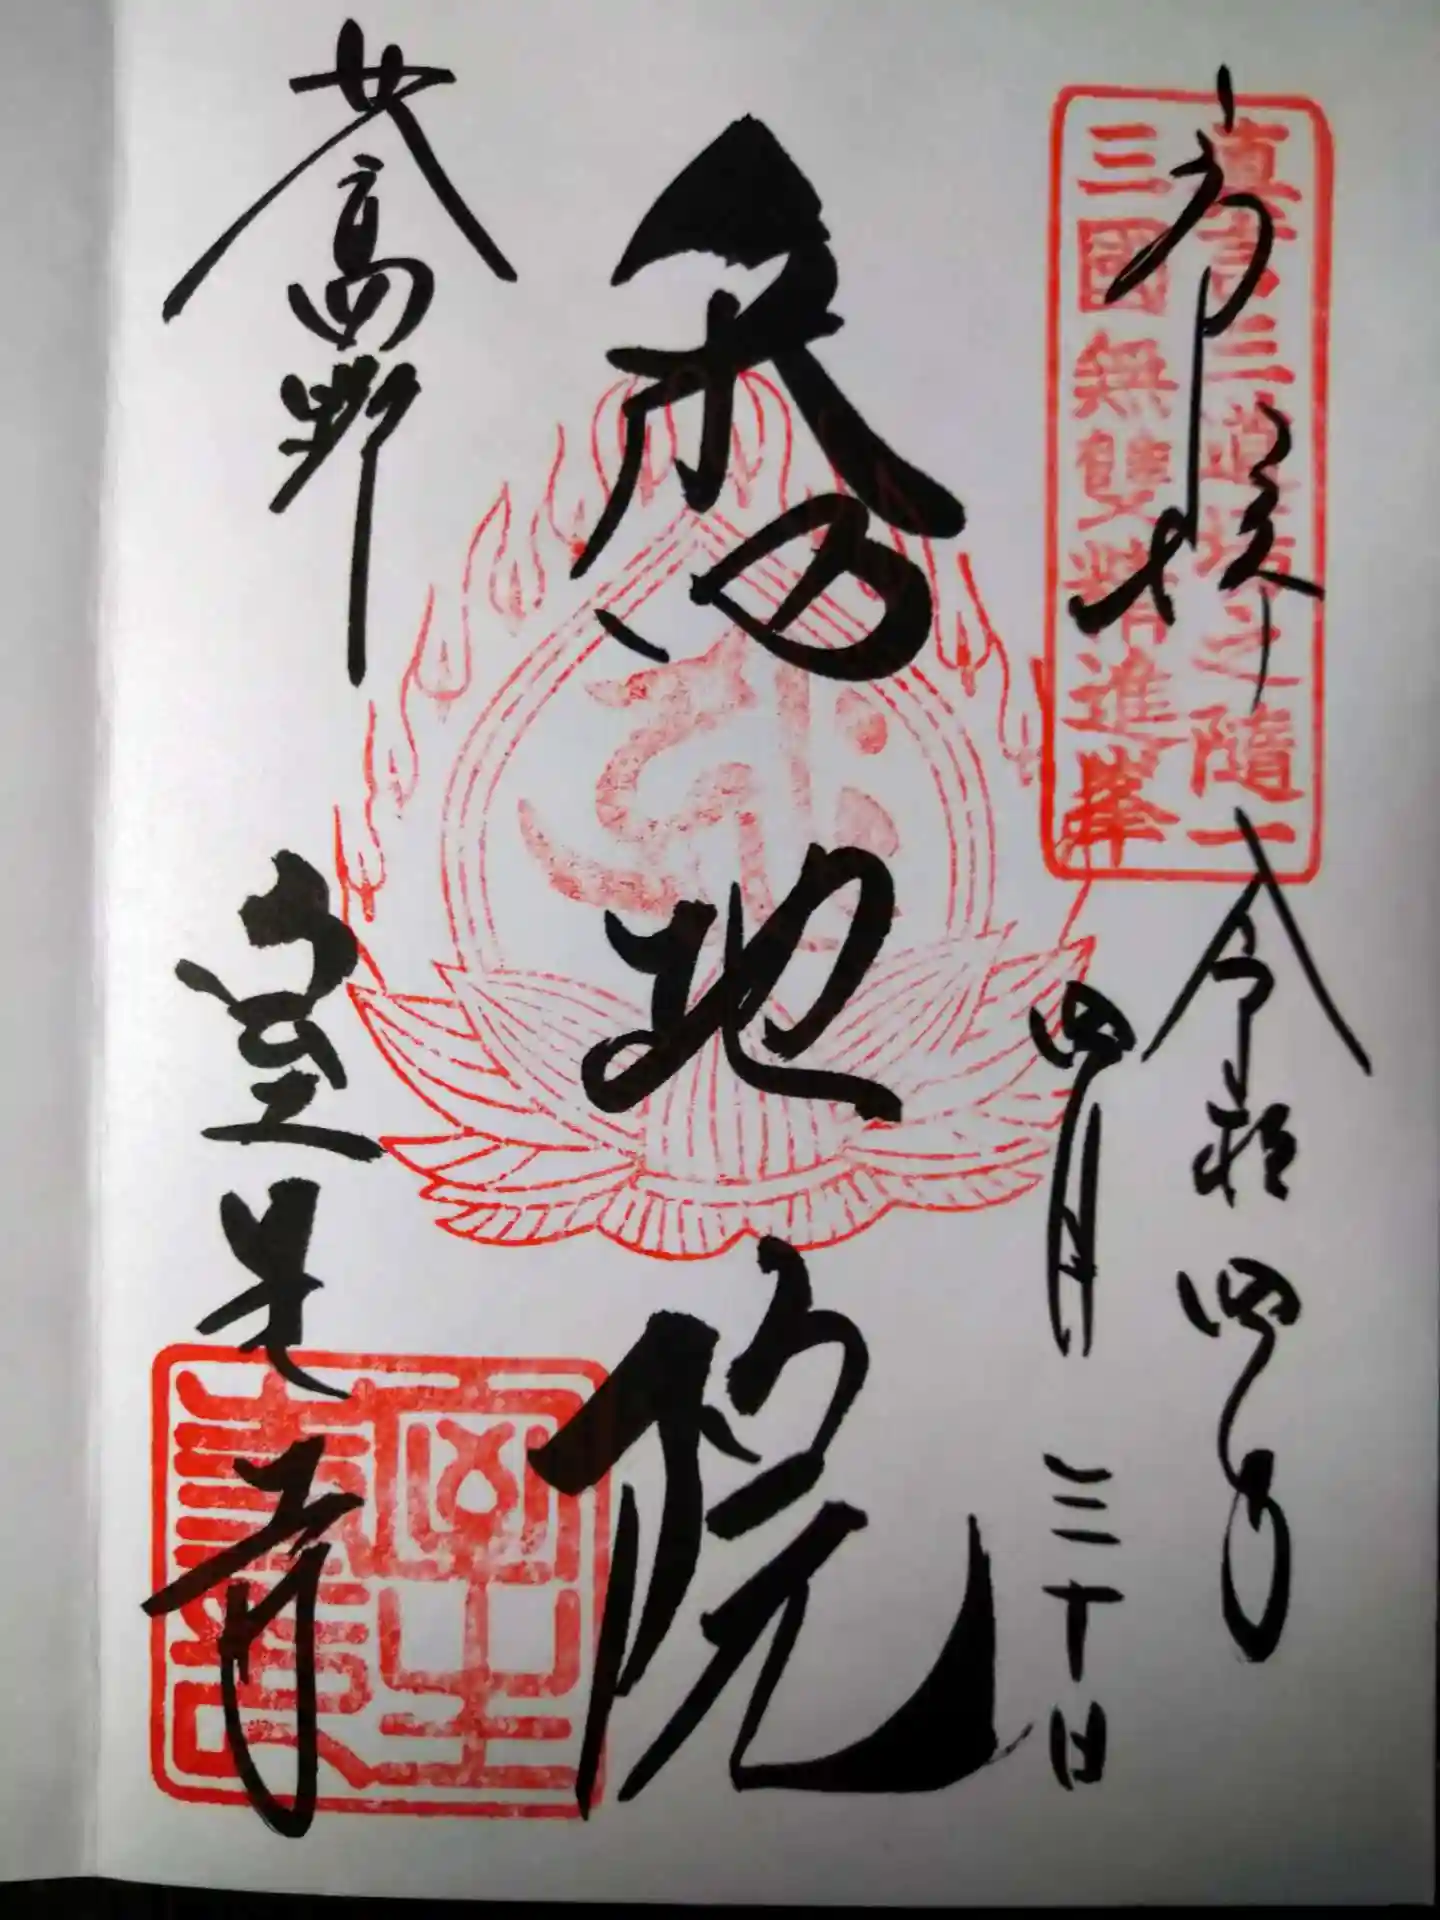 真言三道場之隨一
三國無雙精進峯
奉拝
令和四年
四月三十日
悉地院
女人高野
室生寺